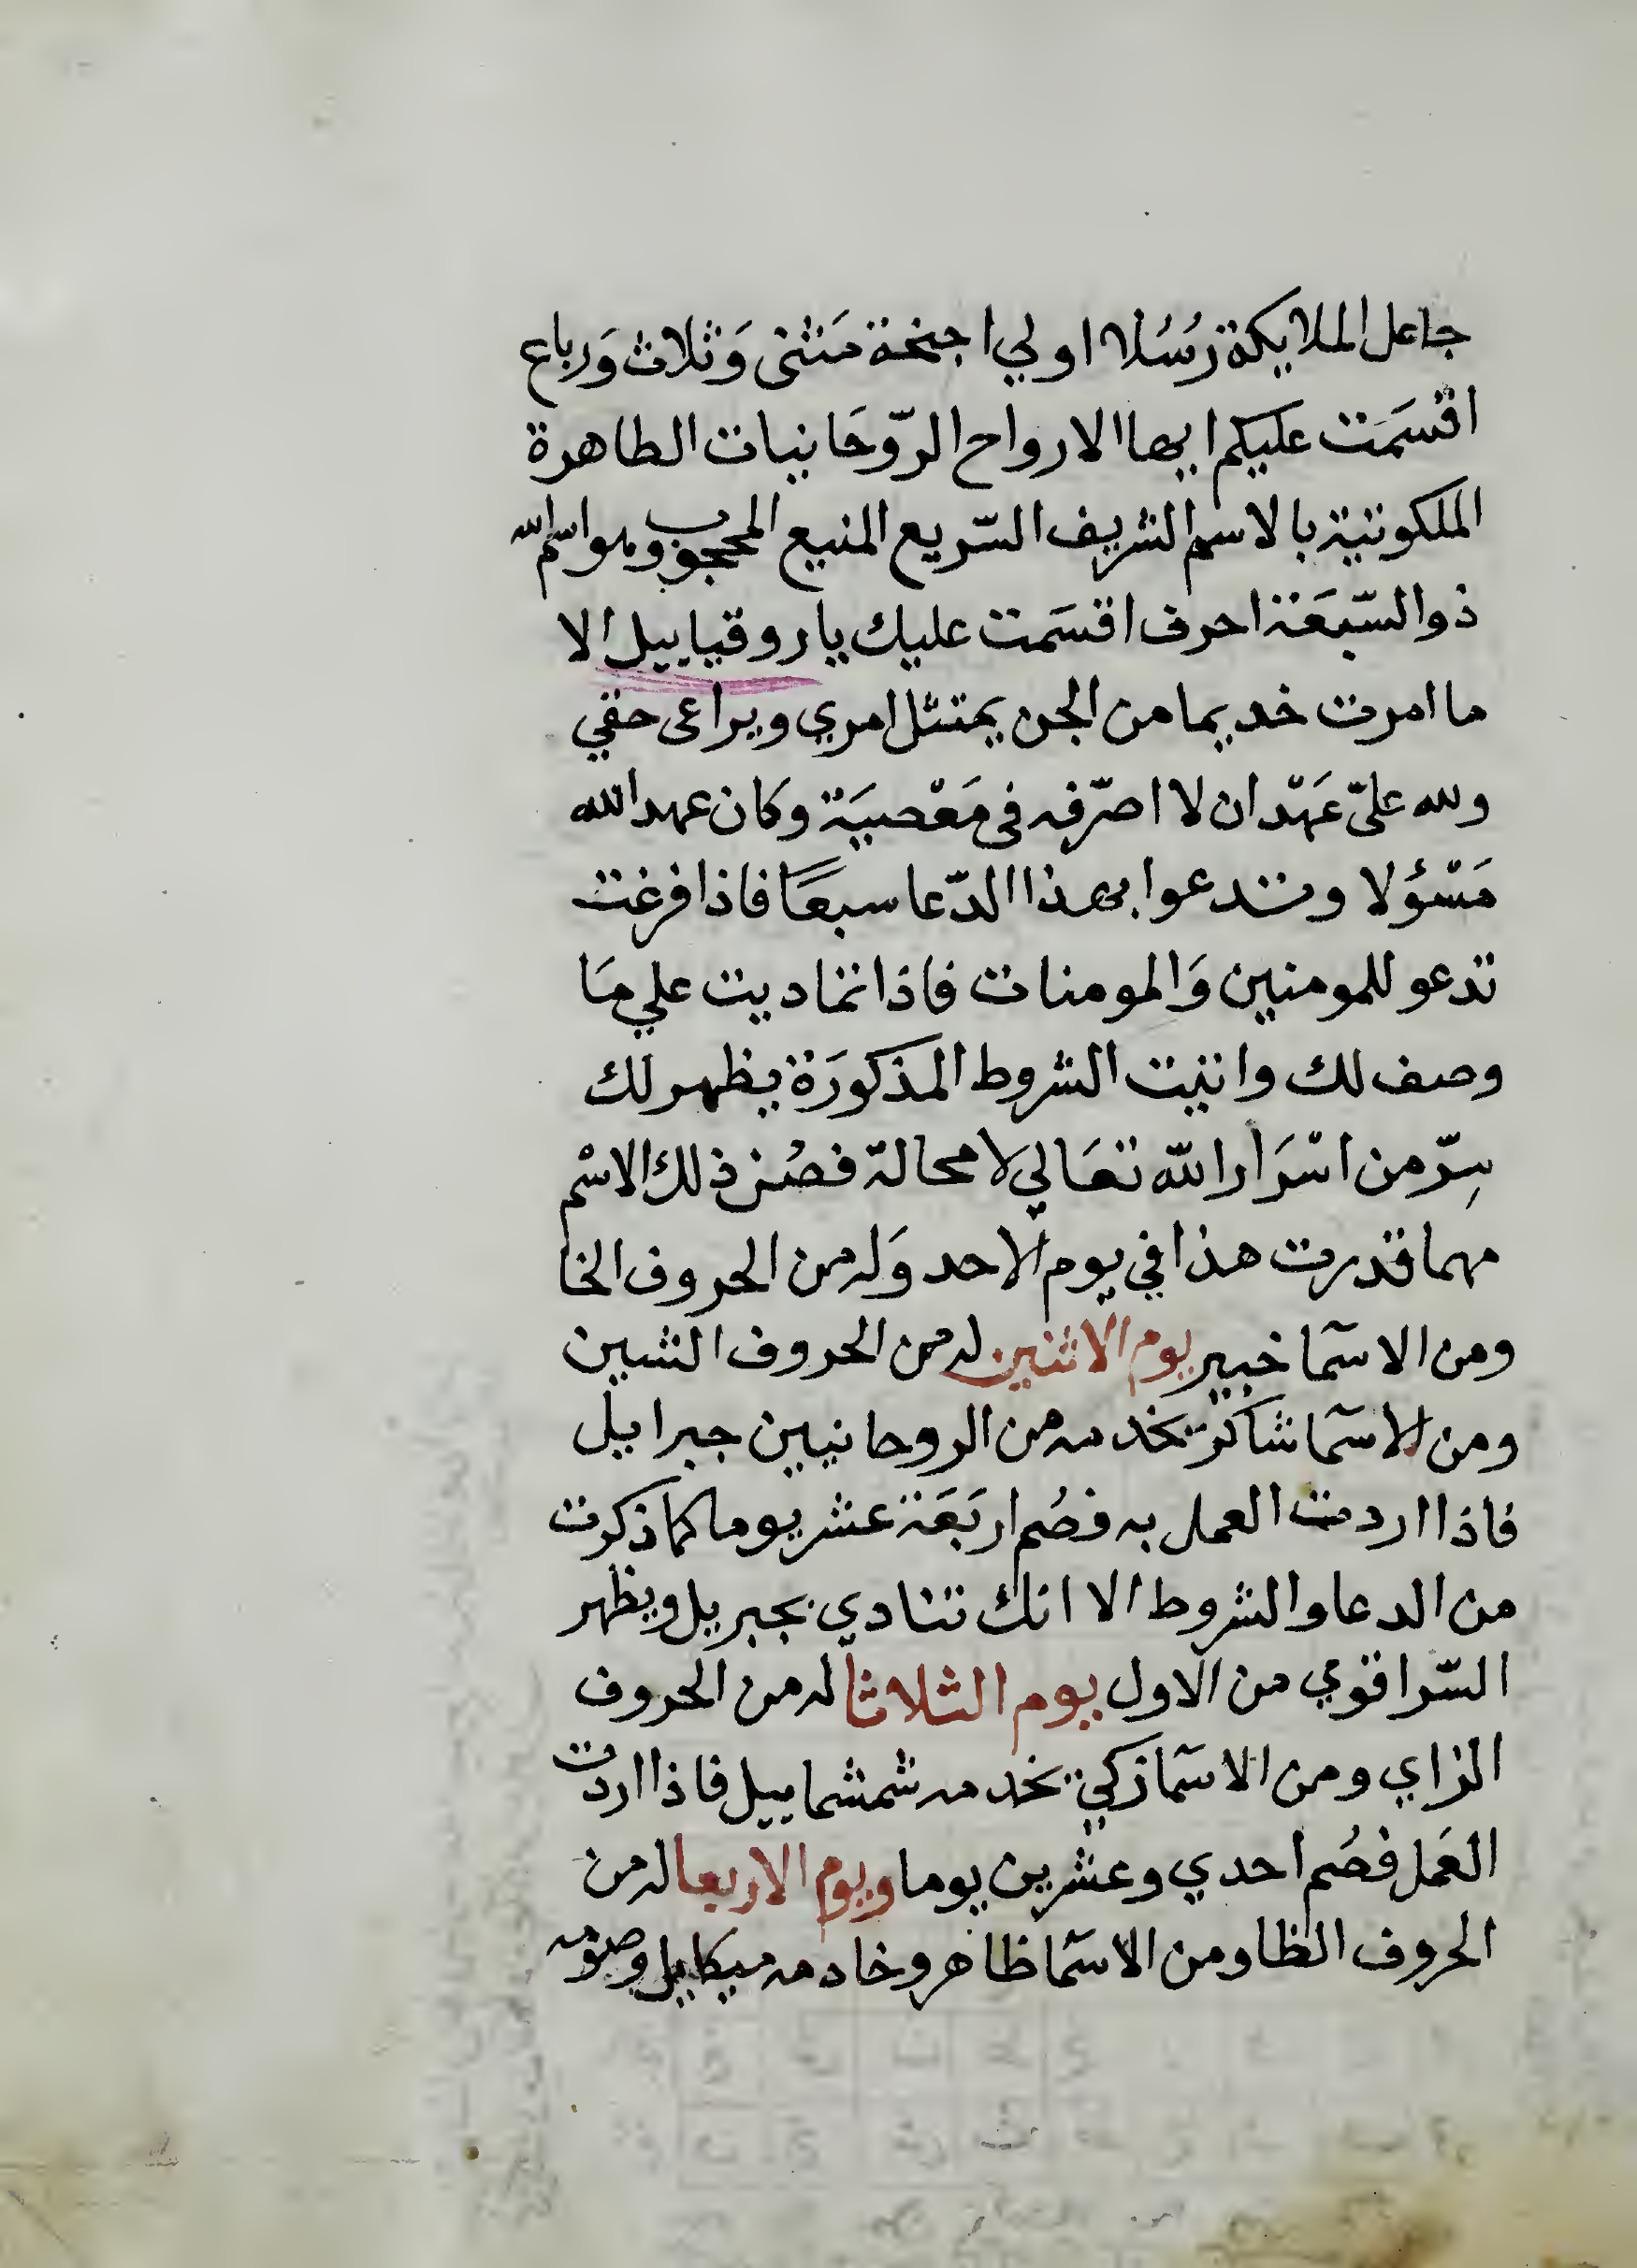 جاعل الملايكة رُسُلا اولي اجنحة مَثنى وَثلاث وَرباع
اقسَمَت عليكم ايها الارواح الرّوحَانيات الطاهرة
الملكوتية بالاسم الشريف السّريع المنيع المحجوب وهو اسم الله
ذو السّبعَة احرف اقسَمت عليك يا روقياييل الا
ما امرت خديما من الجن يمتثل امري ويراعى حقي
ولله علىّ عَهْد ان لا اصرّفه فى مَعْصيَة وكان عهد الله
مَسْؤلا وتدعوا بهذا الدّعا سبعًا فاذا فرغت
تدعو للمومنين وَالمومنات فاذا تماديت علي مَا
وصف لك واتيت الشروط المذكورَة يظهر لك
سِرّ من اسْرَار الله تعَالي لا محالة فصُن ذلك الاسْم
مهما قدرت هذا في يوم الاحد وَله من الحروف الخا
ومن الاسمآ خبير يوم الاثنين له من الحروف الشين
ومن الاسمآ شاكر يخدمه من الروحانيين جبرايل
فاذا اردت العمل به فصُم اربَعَة عشر يوما كما ذكرت
من الدعا والشروط الا انك تنادي بجبريل ويظهر
السّر اقوي من الاول يوم الثلاثا له من الحروف
الزاي ومن الاسمآ زكي يخدمه شمشماييل فاذا اردت
العَمل فصُم احدي وعشرين يوما ويوم الاربعا له من
الحروف الظا ومن الاسمآ ظاهر وخادمه ميكاييل وصومه